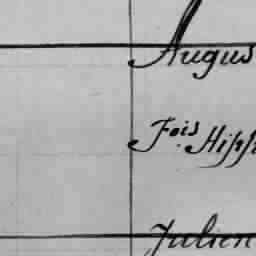 Augus
Fois Hipp
Julien